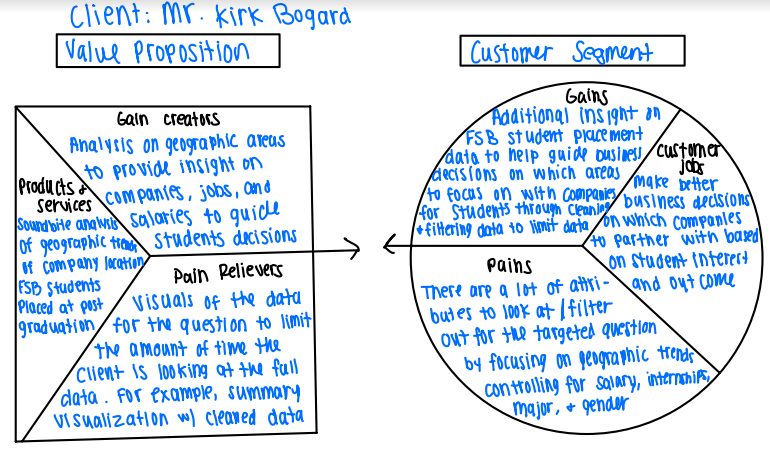 Client: Mr. Kirk Bogard
Value Proposition
Gain creators
Analysis on geographic areas
to provide insight on
companies, jobs, and
salaries to guide
students decisions
Products &
services
Soundbite analysis
of geographic trends
of company location
FSB Students
Placed at post
graduation
Pain Relievers
Visuals of the data
for the question to limit
the amount of time the
client is looking at the full
data. For example, summary
visualization w/ cleaned data
Customer Segment
Gains
Additional insight on
FSB student placement
data to help guide business
decisions on which areas
to focus on with companies
for students through cleaning
+ filtering data to limit data
customer
jobs
make better
business decisions
on which companies
to partner with based
on student interest
and out come
Pains
There are a lot of attri-
butes to look at / filter
out for the targeted question
by focusing on geographic trends
controlling for salary, internships,
major, + gender